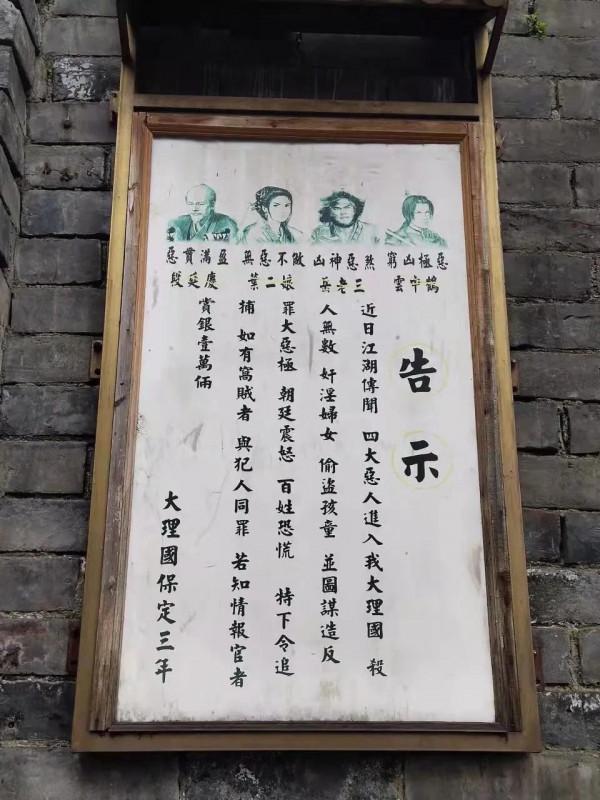 惡貫滿盈 無惡不做 凶神惡煞 窮凶極惡
段延慶 葉二娘 岳老三 雲中鶴
告示
近日江湖傳聞 四大惡人進入我大理國 殺
人無數 奸淫婦女 偷盜孩童 並圖謀造反
罪大惡極 朝廷震怒 百姓恐慌 特下令追
捕 如有窩賊者 與犯人同罪 若知情報官者
賞銀壹萬倆
大理國保定三年